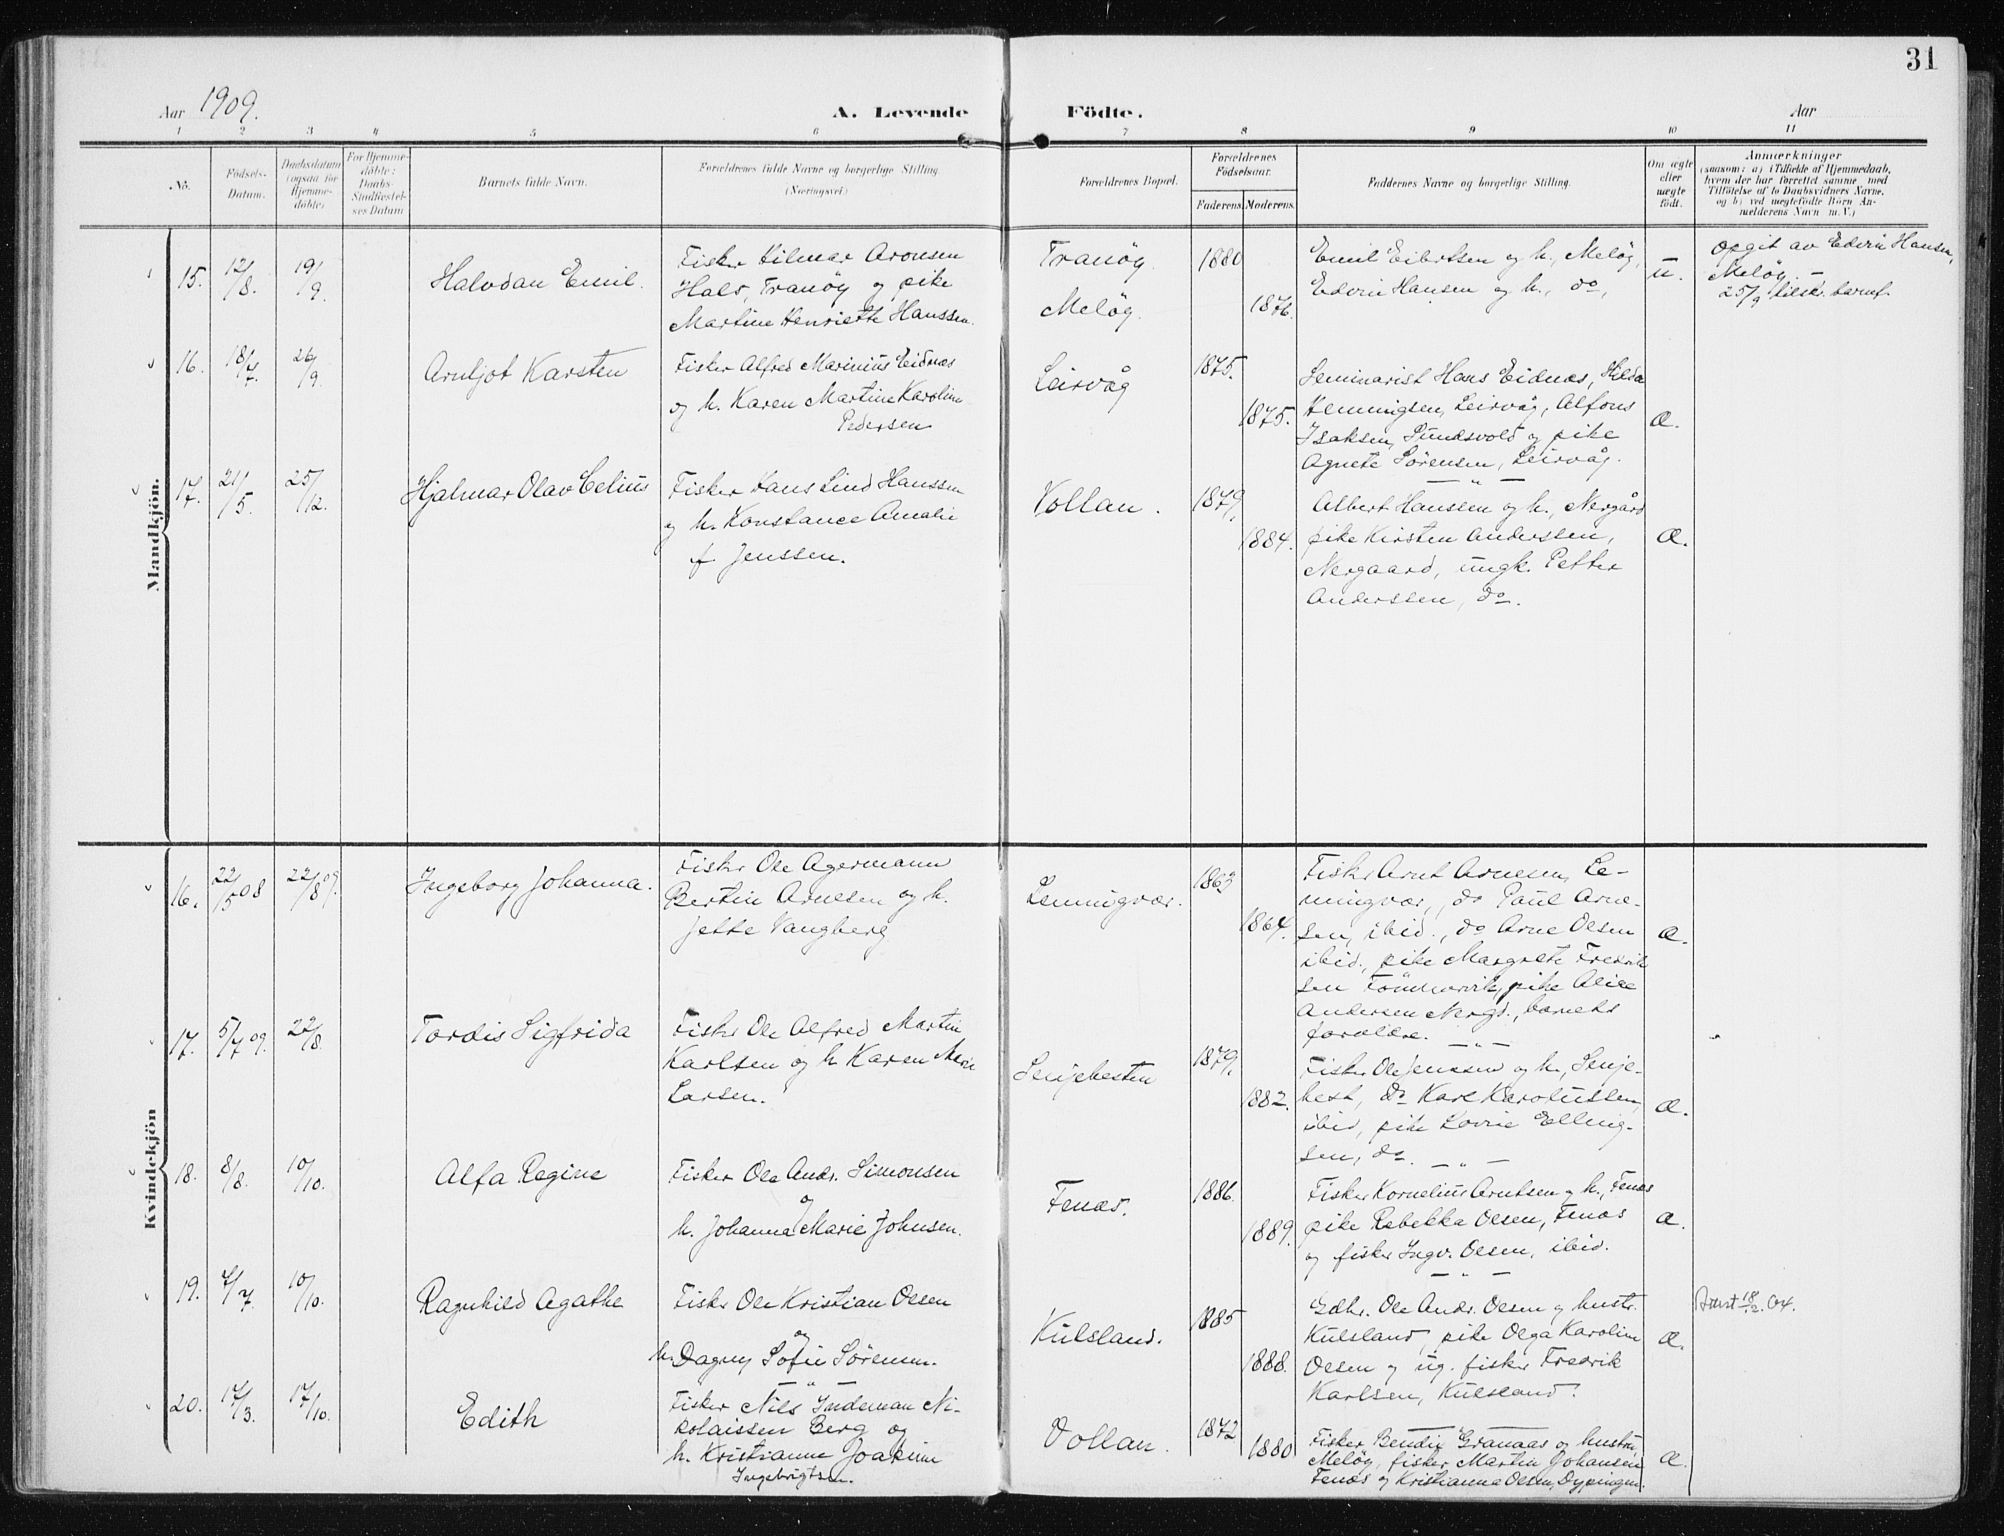 31
Aar 1909.
A. Levende Födte.
Aar
1 2 3 4 5 6 7 8 9 10 11
No.
Födsels-
Datum.
Daabsdatum
(ogsaa for
Hjemme-
döbte)
For Hjemme-
döbte:
Daabs-
Stadfæstel-
ses Datum
Barnets fulde Navn.
Forældrenes fulde Navne og borgerlige Stilling
(Næringsvei)
Forældrenes Bopæl.
Forældrenes
Födselsaar.
Faderens. Moderens.
Faddernes Navne og borgerlige Stilling.
Om ægte
eller
uægte
födt.
Anmærkninger
(saasom: a) i Tilfælde af Hjemmedaab,
hvem der har forrettet samme med
Tilföielse af to Daabsvidners Navne,
og b) ved uægtefödte Börn An-
melderens Navn m. V.)
Mandkjön.
15.
12/8.
19/9.
Halvdan Emil.
Fisker Hilmar Aronsen
Hals, Tranöy og pike
Martine Henriette Hanssen.
Tranöy
Melöy.
1880
1876.
Emil Eibertsen og h., Melöy,
Edvin Hansen og h., do,
u.
Opgit av Edvin Hansen,
Melöy. –
25/9 tilskr. barnef.
16.
18/7.
26/9.
Arnljot Karsten
Fisker Alfred Marinius Eidnæs
og h. Karen Martine Karoline
Pedersen
Leirvåg
1875.
1875.
Seminarist Hans Eidnæs, Hilda
Hemmingsen, Leirvåg, Alfons
Isaksen, Sundsvold og pike
Agnete Sørensen, Leirvåg.
æ.
17.
21/5.
25/12.
Hjalmar Olav Celius
Fisker Hans Lind Hanssen
og h. Konstance Amalie
f. Jenssen.
Vollan.
1879,
1884.
Albert Hanssen og h., Nergård
pike Kirsten Anderssen,
Nergaard, ungk. Petter
Anderssen, do.
æ.
Kvindekjön
16.
22/5 08
22/8 09.
Ingeborg Johanna.
Fisker Ole Agermann
Bertin Arnesen og h.
Jette Vangberg
Lemmingvær.
1863
1864.
Fisker Arnt Arnesen, Le-
mingvær, do Paul Arne-
sen, ibid., do Arne Olsen
ibid., pike Margrete Fredrik
sen Tömmervik, pike Alice
Andersen Nergd., barnets
forældre.
æ.
17.
5/7 09.
22/8.
Tordis Sigfrida
Fisker Ole Alfred Martin
Karlsen og h. Karen Marie
Larsen.
Senjehesten
1879,
1882.
Fisker Ole Jenssen og h., Senje-
hest, do Karl Karolussen,
ibid, pike Lovise Elling-
sen, do.
æ.
18.
8/8.
10/10.
Alfa Regine
Fisker Ole Andr. Simonsen
og
h. Johanna Marie Johnsen.
Fenæs.
1886.
1889.
Fisker Kornelius Arntsen og h., Fenæs
pike Rebekka Olsen, Fenæs
og fisker Ingv. Olsen, ibid.
æ.
19.
7/7.
10/10.
Ragnhild Agathe
Fisker Ole Kristian Olsen
og
h. Dagny Sofie Sörensen.
Kulsland.
1885
1888.
Gdbr. Ole Andr. Olsen og hustr.
Kulsland, pike Olga Karoline
Olsen og ug. fisker Fredrik
Karlsen, Kulsland.
æ.
18/2.
20.
17/3.
17/10.
Edith
Fisker Nils Indeman Ni-
kolaissen Berg og
h. Kristianne Joakime
Ingebrigtsen.
Vollan.
1872
1880
Fisker Bendix Granaas og hustru,
Melöy, fisker Martin Johansen
Fenæs og Kristianna Olsen, Dypingen.
æ.